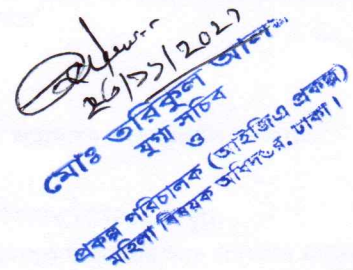 ২৬/১১/২০২১
মোঃ তরিকুল আলম
যুগ্ম সচিব
ও
প্রকল্প পরিচালক (আইজিএ প্রকল্প)
মহিলা বিষয়ক অধিদপ্তর, ঢাকা।